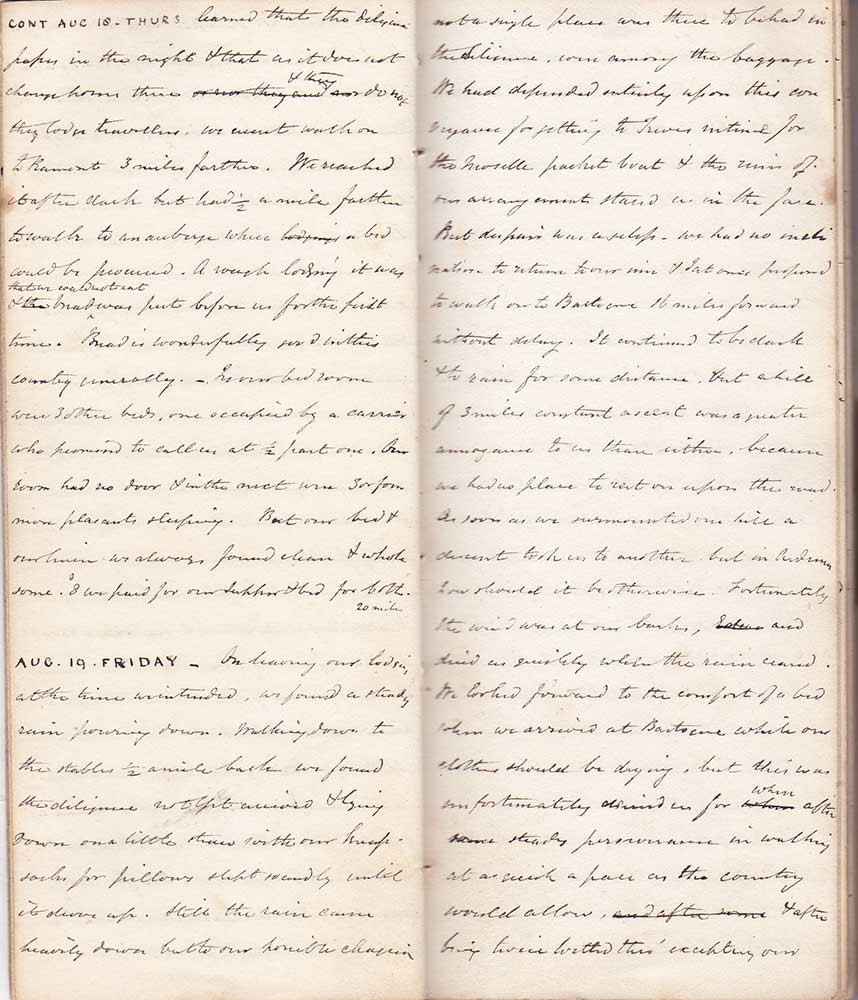 CONT AUG 18 - THURS learned that the diligence
passes in the night & that as it does not
change horses there or nor they and nor & they do not
they lodge travellers, we must walk on
to Ramont 3 miles farther. We reached
it after dark but had ½ a mile farther
to walk to an auberge where lodgings a bed
could be procured. A rough lodging it was
that we could not eat
& the bread was put before us for the first
time. Bread is wonderfully good in this
country generally. - In our bed room
were 3 other beds, one occupied by a carrier
who promised to call us at ½ past one. Our
room had no door & in the next were 3 or four
more peasants sleeping. But our bed &
our linen we always found clean & whole
some. 8 we paid for our supper & bed for both.
20 miles
AUG. 19. FRIDAY - On leaving our lodging
at the time we intended, we found a steady
rain pouring down. Walking down to
the stables ½ a mile back we found
the diligence not yet arrived & lying
down on a little straw with our knap-
sacks for pillows slept soundly until
it drove up. Still the rain came
heavily down but to our horrible chagrin
not a single place was there to be had in
the diligence, even among the baggage.
We had depended entirely upon this con
veyance for getting to Treves in time for
the Moselle packet boat & the ruin of
our arrangements stared us in the face.
But despair was useless - we had no incli
nation to return to our inn & I at once proposed
to walk on to Bastogne 16 miles forward
without delay. It continued to be dark
& to rain for some distance, but a hill
of 3 miles constant ascent was a greater
annoyance to us than either, because
we had no place to rest on upon the road.
As soon as we surmounted one hill a
descent took us to another but in Ardennes
how should it be otherwise. Fortunately
the wind was at our backs, and
dried us quickly when the rain ceased.
We looked forward to the comfort of a bed
when we arrived at Bastogne while our
clothes should be drying, but this was
unfortunately denied us for when when after
some steady perseverance in walking
at as quick a pace as the country
would allow, and after some & after
being twice wetted thro' excepting our